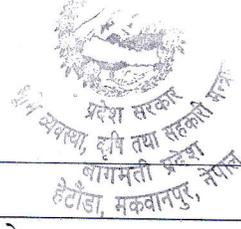 प्रदेश सरकार
भूमि व्यवस्था, कृषि तथा सहकारी मन्त्रा
बागमती प्रदेश
हेटौंडा, मकवानपुर, नेपाल